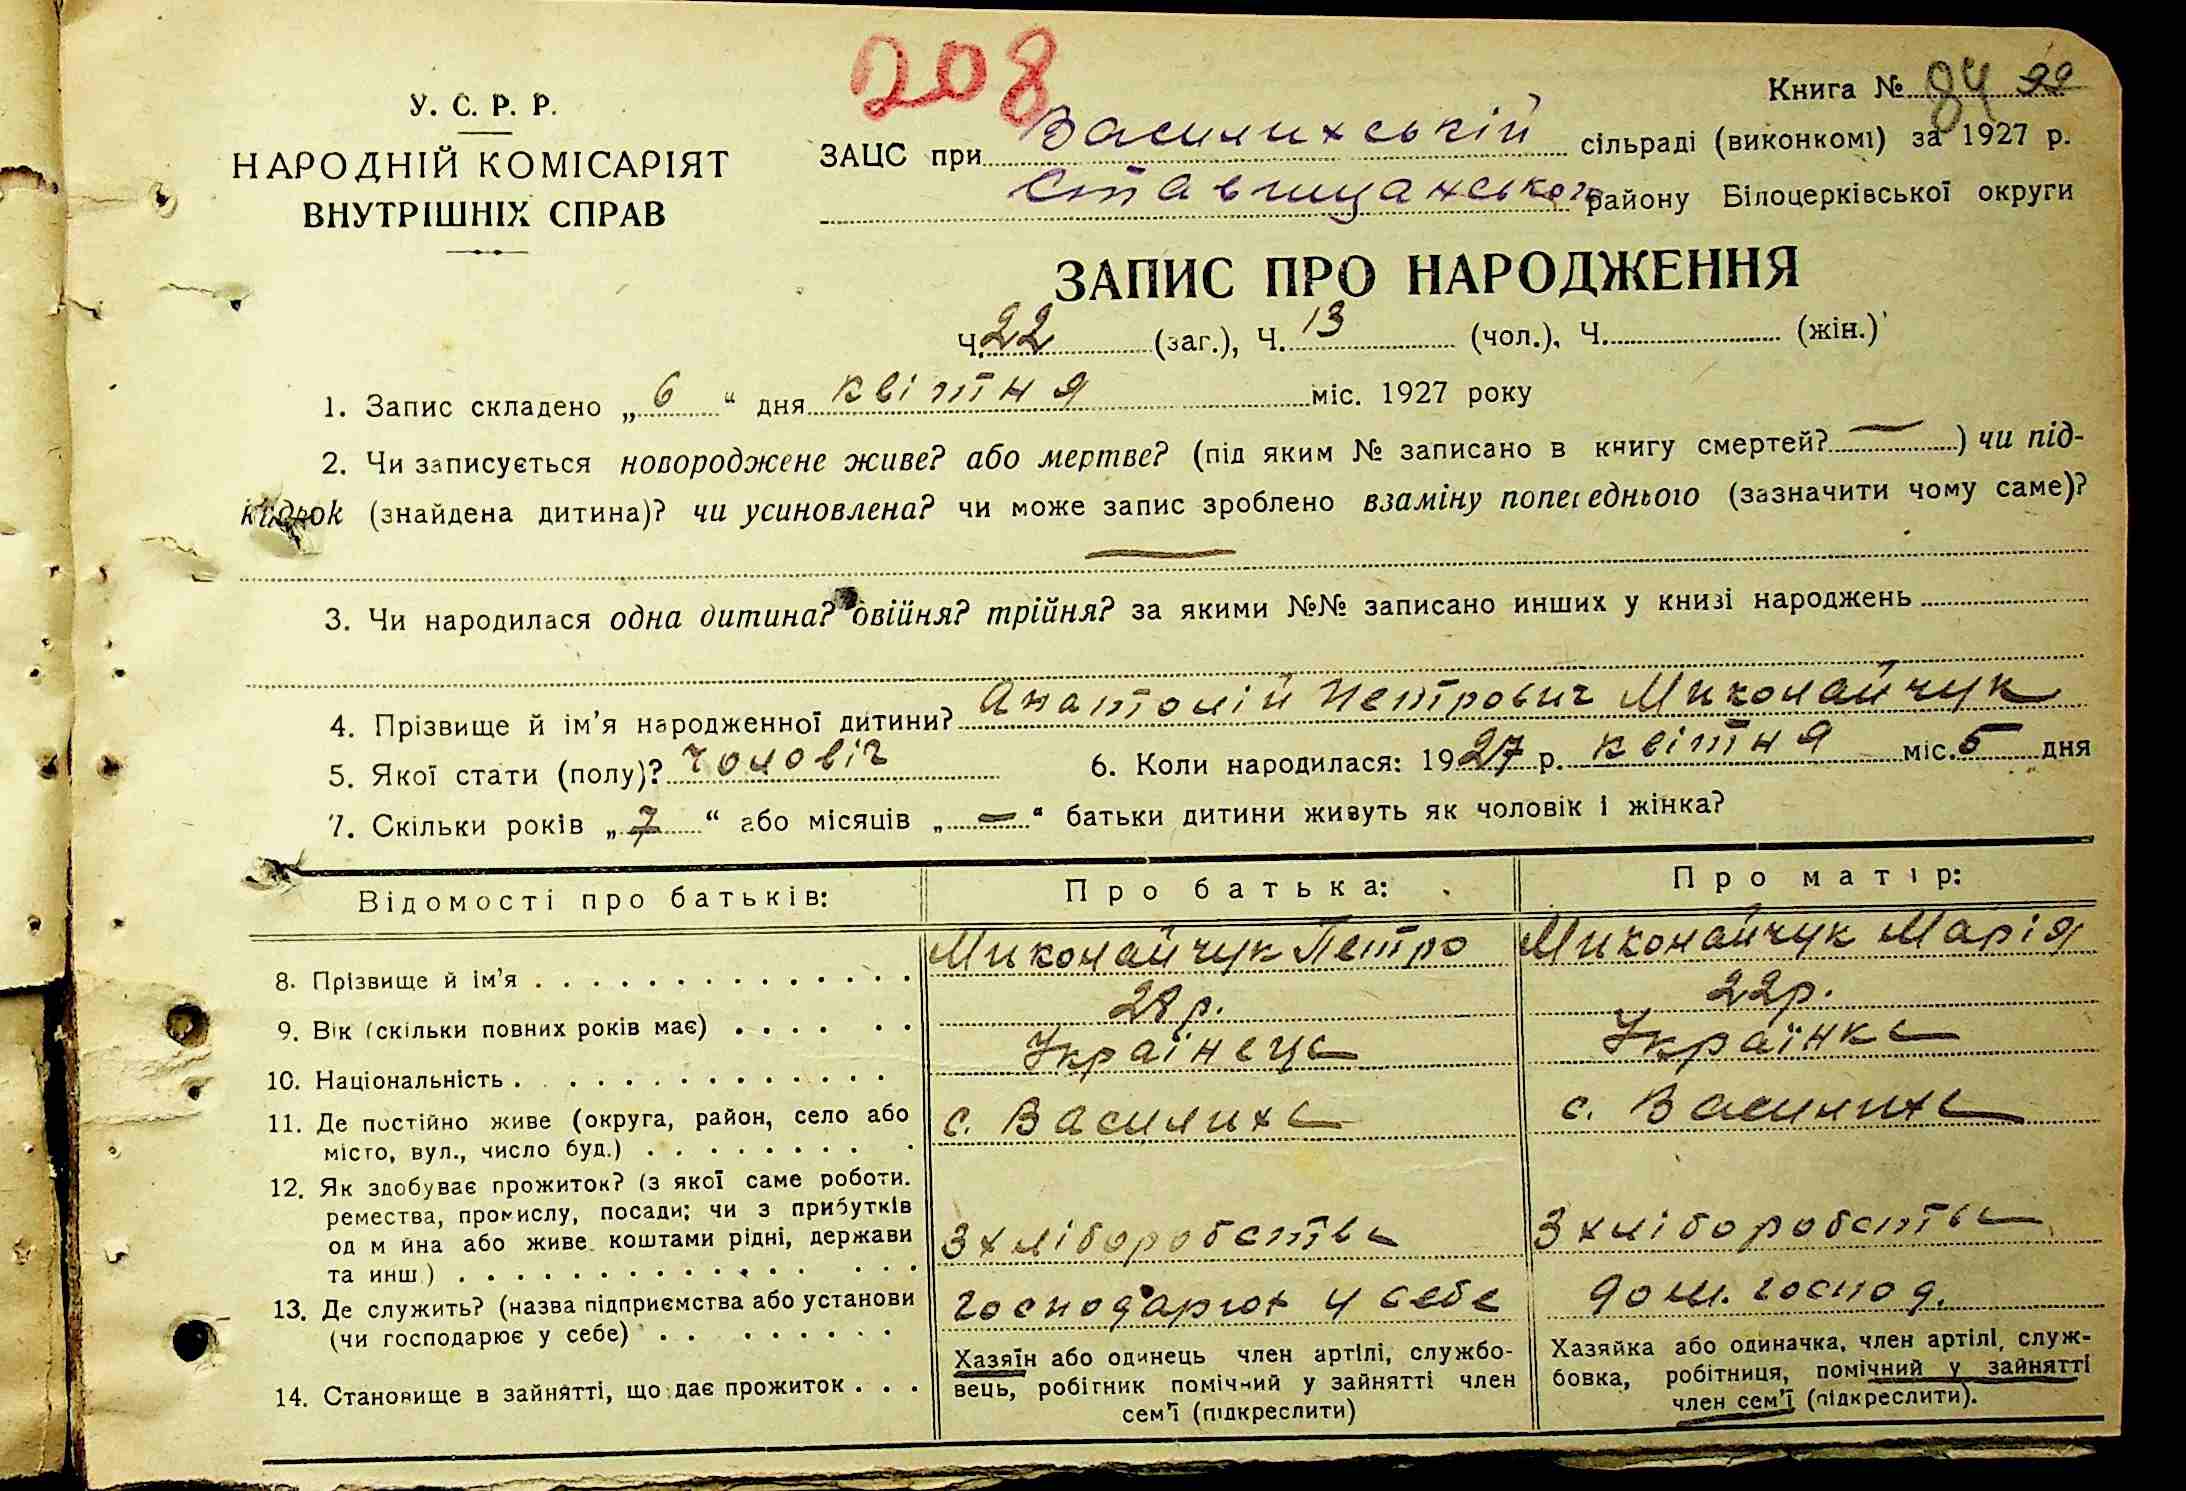 208
Книга № 84 99
У. С. Р. Р.
НАРОДНІЙ КОМІСАРІЯТ
ВНУТРІШНІХ СПРАВ
ЗАЦС при Василихській сільраді (виконкомі) за 1927 р.
Ставищанського району Білоцерківської округи
ЗАПИС ПРО НАРОДЖЕННЯ
Ч. 22 (заг.), Ч. 13 (чол.), Ч. (жін.)
1. Запис складено „ 6 “ дня квітня міс. 1927 року
2. Чи записується новороджене живе? або мертве? (під яким № записано в книгу смертей? — ) чи під-
кидьок (знайдена дитина)? чи усиновлена? чи може запис зроблено взаміну попереднього (зазначити чому саме)?
—
3. Чи народилася одна дитина? двійня? трійня? за якими №№ записано инших у книзі народжень
4. Прізвище й ім’я народженної дитини? Анатолій Петрович Миколайчук
5. Якої стати (полу)? чоловіч 6. Коли народилася: 1927 р. квітня міс. 5 дня
7. Скільки років „ 7 “ або місяців „ — “ батьки дитини живуть як чоловік і жінка?
Відомості про батьків: Про батька: Про матір:
8. Прізвище й ім’я . . . . Миколайчук Петро Миколайчук Марія
9. Вік (скільки повних років має) . . . . 28 р. 22 р.
10. Національність . . . . Українець Українка
11. Де постійно живе (округа, район, село або
місто, вул., число буд.) . . . . с. Василиха с. Василиха
12. Як здобуває прожиток? (з якої саме роботи.
ремества, промислу, посади; чи з прибутків
од майна або живе коштами рідні, держави
та инш.) . . . . З хліборобства З хліборобства
13. Де служить? (назва підприємства або установи
(чи господарює у себе) . . . . господарює у себе дом. господ.
14. Становище в зайнятті, що дає прожиток . . .
Хазяїн або одинець член артілі, службо-
вець, робітник помічний у зайнятті член
сем’ї (підкреслити)
Хазяйка або одиначка, член артілі, служ-
бовка, робітниця, помічний у зайнятті
член сем’ї (підкреслити).